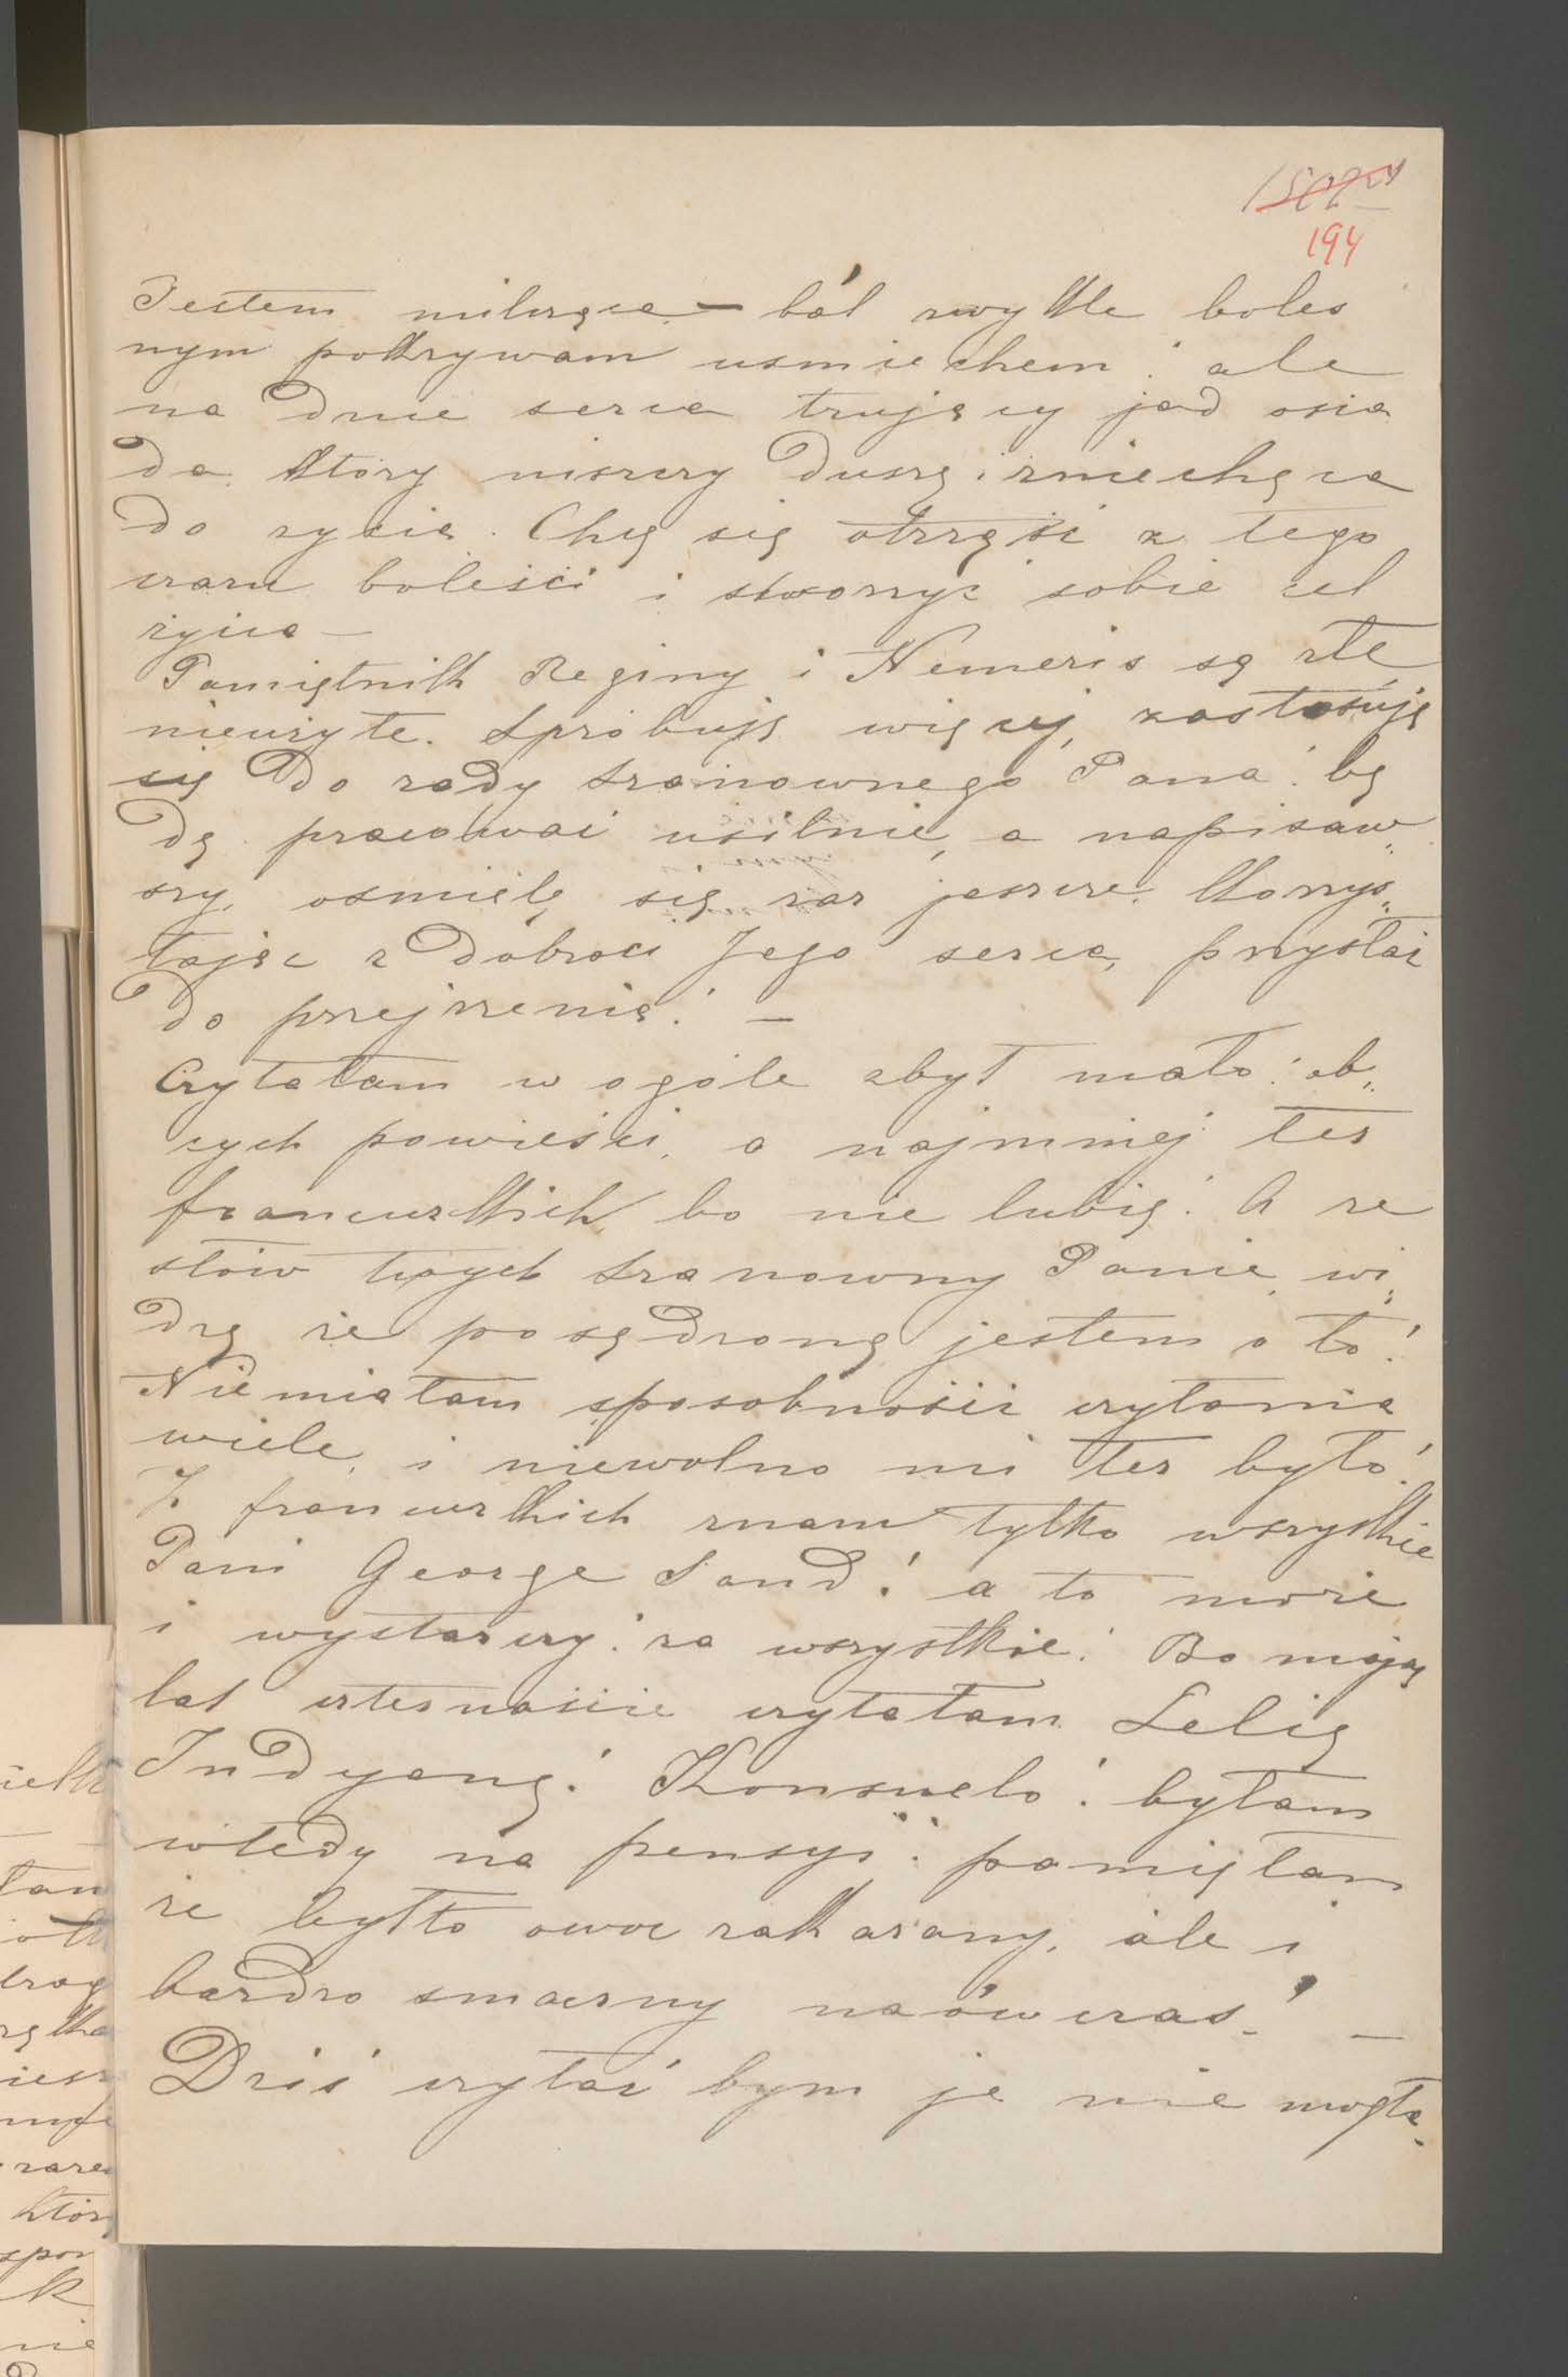 194
Jestem milcząca — ból zwykle boles
nym pokrywam usmiechem: ale
na dnie serca trujący jad osia
da który niszczy duszę i zniechęca
do zycia. Chcę się otrząść z tego
czaru boleści i stworzyć sobie cel
życia —
Pamiętnik Reginy i Nemezis są złe
nieużyte. Spróbuję więcej, zastosuję
się do rady Szanownego Pana: bę
dę pracować usilnie, a napisaw„
szy, osmielę się raz jeszcze korzys„
tając z dobroci Jego serca, przysłać
do przejrzenia! —
Czytałam w ogóle zbyt mało: ob„
cych powieści, a najmniej tez
francuzkich, bo nie lubię! A ze
słów twoych Szanowny Panie, wi„
dzę że posądzoną jestem o to!
Niemiałam sposobności czytania
wiele, i niewolno mi tez było!
Z francuzkich znam tylko wszystkie
Pani George Sand! a to może
i wystarczy: za wszystkie! Bo mając
lat czternaście czytałam Lelię
Indyanę! Konsuelo! byłam
wtedy na pensyi: pamiętam
że był to owoc zakazany, ale i
bardzo smaczny naówczas! —
Dziś czytać bym je nie mogła.